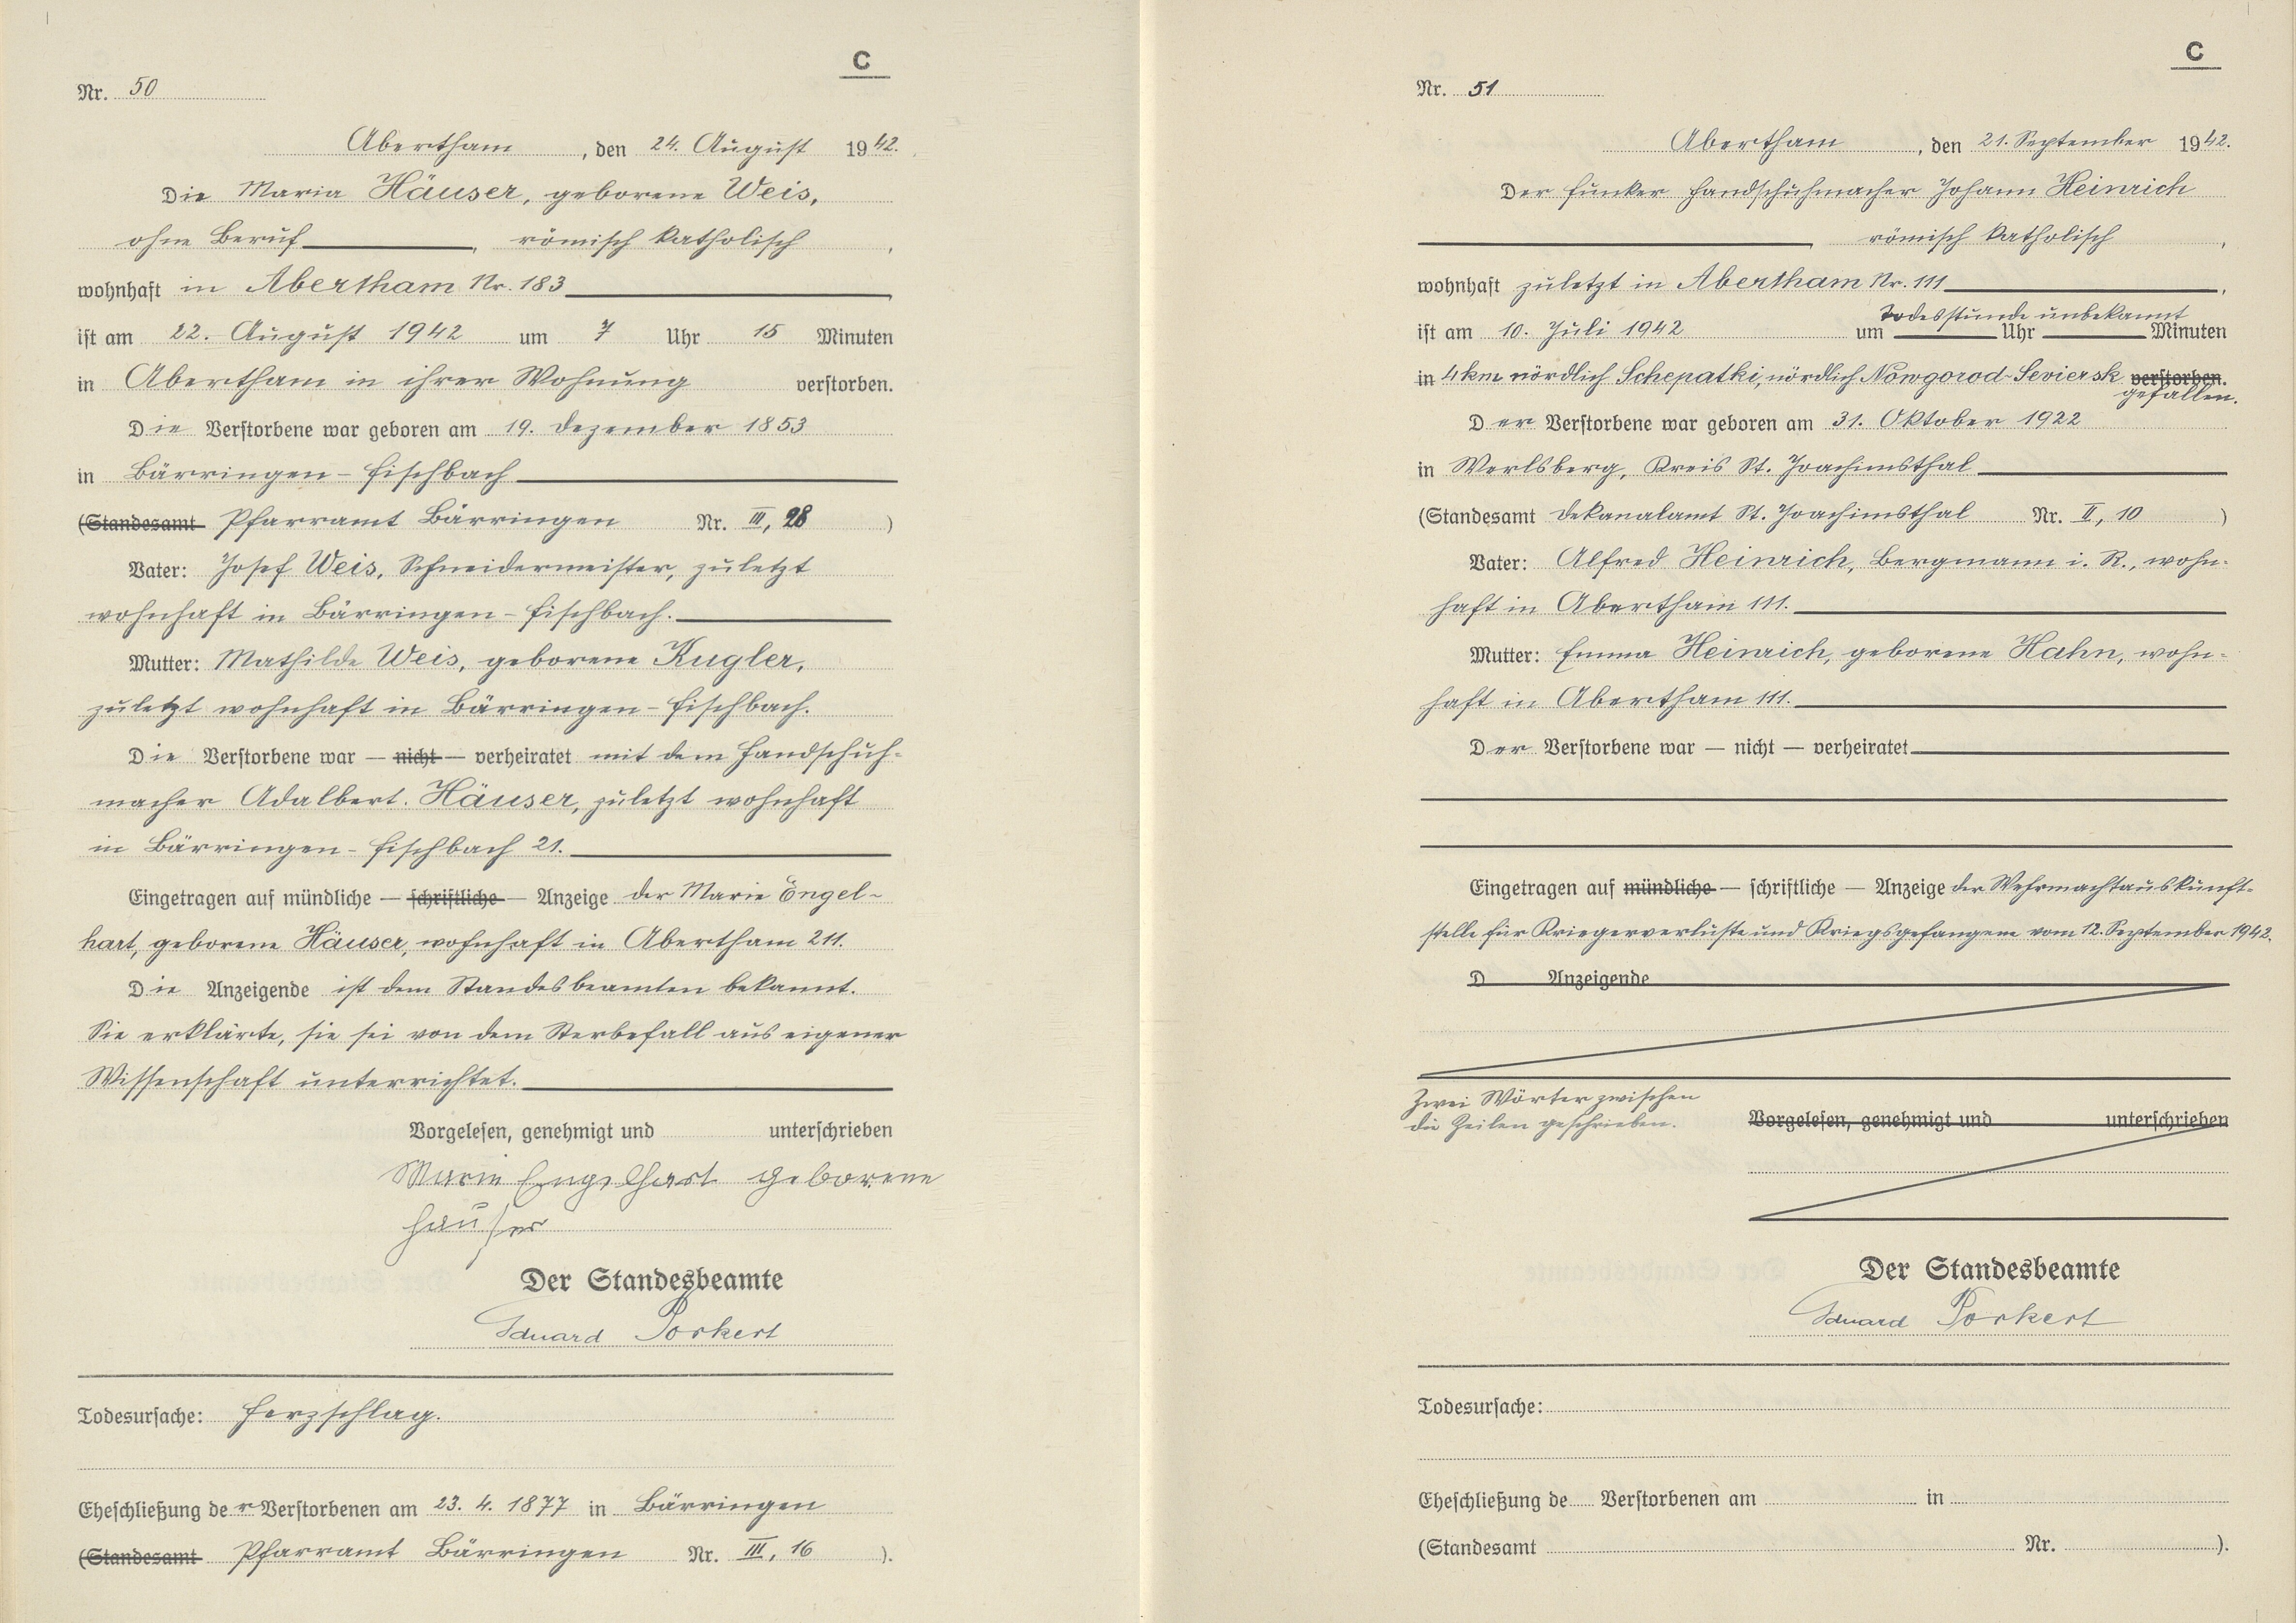 C
Nr. 50
Abertham, den 24. August 1942.
Die Maria Häuser, geborene Weis,
ohne Beruf, römisch katholisch,
wohnhaft in Abertham Nr. 183,
ist am 22. August 1942 um 7 Uhr 15 Minuten
in Abertham in ihrer Wohnung verstorben.
Die Verstorbene war geboren am 19. Dezember 1853
in Bärringen-Fischbach
(Standesamt Pfarramt Bärringen Nr. III, 28)
Vater: Josef Weis, Schneidermeister, zuletzt
wohnhaft in Bärringen-Fischbach.
Mutter: Mathilde Weis, geborene Kugler,
zuletzt wohnhaft in Bärringen-Fischbach.
Die Verstorbene war — nicht — verheiratet mit dem Handschuh-
macher Adalbert Häuser, zuletzt wohnhaft
in Bärringen-Fischbach 21.
Eingetragen auf mündliche — schriftliche — Anzeige der Marie Engel-
hart, geborene Häuser, wohnhaft in Abertham 211.
Die Anzeigende ist dem Standesbeamten bekannt.
Sie erklärte, sie sei von dem Sterbefall aus eigener
Wissenschaft unterrichtet.
Vorgelesen, genehmigt und unterschrieben
Marie Engelhart geborene
Häuser
Der Standesbeamte
Eduard Porkert
Todesursache: Herzschlag.
Eheschließung der Verstorbenen am 23. 4. 1877 in Bärringen
(Standesamt Pfarramt Bärringen Nr. III, 16).
C
Nr. 51
Abertham, den 21. September 1942.
Der Funker Handschuhmacher Johann Heinrich
römisch katholisch,
wohnhaft zuletzt in Abertham Nr. 111,
Todesstunde unbekannt
ist am 10. Juli 1942 um Uhr Minuten
in 4 km nördlich Schepatki, nördlich Nowgorod-Seviersk verstorben.
gefallen.
Der Verstorbene war geboren am 31. Oktober 1922
in Werlsberg, Kreis St. Joachimsthal
(Standesamt Dekanalamt St. Joachimsthal Nr. II, 10)
Vater: Alfred Heinrich, Bergmann i. R., wohn-
haft in Abertham 111.
Mutter: Emma Heinrich, geborene Hahn, wohn-
haft in Abertham 111.
Der Verstorbene war — nicht — verheiratet
Eingetragen auf mündliche — schriftliche — Anzeige der Wehrmachtauskunft-
stelle für Kriegerverluste und Kriegsgefangene vom 12. September 1942.
D Anzeigende
Zwei Wörter zwischen
die Zeilen geschrieben.
Vorgelesen, genehmigt und unterschrieben
Der Standesbeamte
Eduard Porkert
Todesursache:
Eheschließung de Verstorbenen am in
(Standesamt Nr. ).